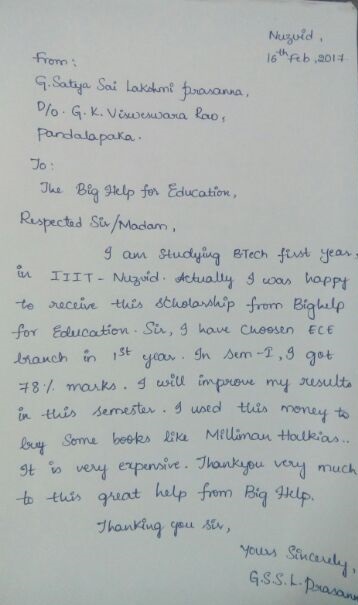 Nuzvid,
16th Feb, 2017.
From:
G. Satya Sai Lakshmi Prasanna,
D/o. G. K. Visweswara Rao,
Pandalapaka.
To:
The Big Help for Education,
Respected Sir/Madam,
I am Studying BTech first year,
in IIIT - Nuzvid. Actually I was happy
to receive this scholarship from Bighelp
for Education. Sir, I have Choosen ECE
branch in 1st year. In Sem-I, I got
78% marks. I will improve my results
in this semester. I used this money to
buy Some books like Milliman Halkias..
It is very expensive. Thankyou very much
to this great help from Big Help.
Thanking you Sir,
Yours Sincerely,
G.S.S.L. Prasann